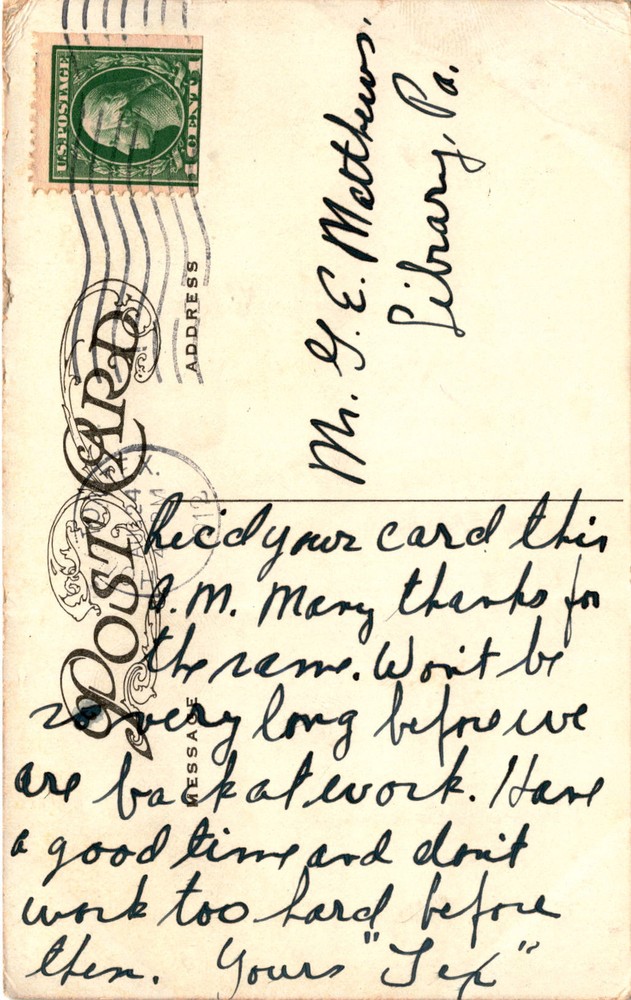 U.S.POSTAGE
1 CENT 1
POST CARD
ADDRESS
MESSAGE
TEX.
4
M
1912
Mr. G. E. Matthews.
Library, Pa.
Rec'd your card this
A.M. Many thanks for
the same. Won't be
so very long before we
are back at work. Have
a good time and don't
work too hard before
then. Yours "Tex"